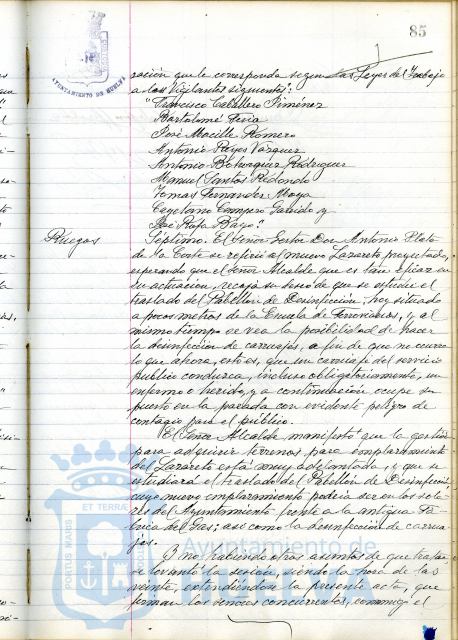 85
AYUNTAMIENTO DE HUELVA
ración que le corresponda segun las Leyes del Trabajo
a los Vigilantes siguientes:
"Francisco Caballero Jiménez
Bartolomé Feria
José Macille Romero
Antonio Reyes Vázquez
Antonio Bohorquez Rodriguez
Manuel Santos Redondo
Tomas Fernandez Moya
Cayetano Campero Garrido y
José Rofa Bayo."
Ruegos
Séptimo. El Señor Gestor Don Antonio Plata
de la Corte se refirió al nuevo Lazareto proyectado,
esperando que el Señor Alcalde que es tan eficaz en
su actuación, recoja su deseo de que se estudie el
traslado del Pabellón de Desinfección, hoy situado
a pocos metros de la Escuela de Ferroviarios, y al
mismo tiempo se vea la posibilidad de hacer
la desinfección de carruajes, a fin de que no ocurra
lo que ahora, esto es, que un carruaje del servicio
público conduzca, incluso obligatoriamente, un
enfermo o herido, y a continuación ocupe su
puesto en la parada con evidente peligro de
contagio para el público.
El Señor Alcalde manifestó que la gestión
para adquirir terrenos para emplazamiento
del Lazareto está muy adelantada, y que se
estudiará el traslado del Pabellón de Desinfección
cuyo nuevo emplazamiento podría ser en los sola-
res del Ayuntamiento frente a la antigua Fá-
brica del Gas; así como la desinfección de carrua-
jes.
Y no habiendo otros asuntos de que tratar
se levantó la sesión, siendo la hora de las
veinte, extendiéndose la presente acta, que
firman los señores concurrentes, conmigo el
PORTUS MARIS ET TERRAE
Ayuntamiento de
HUELVA